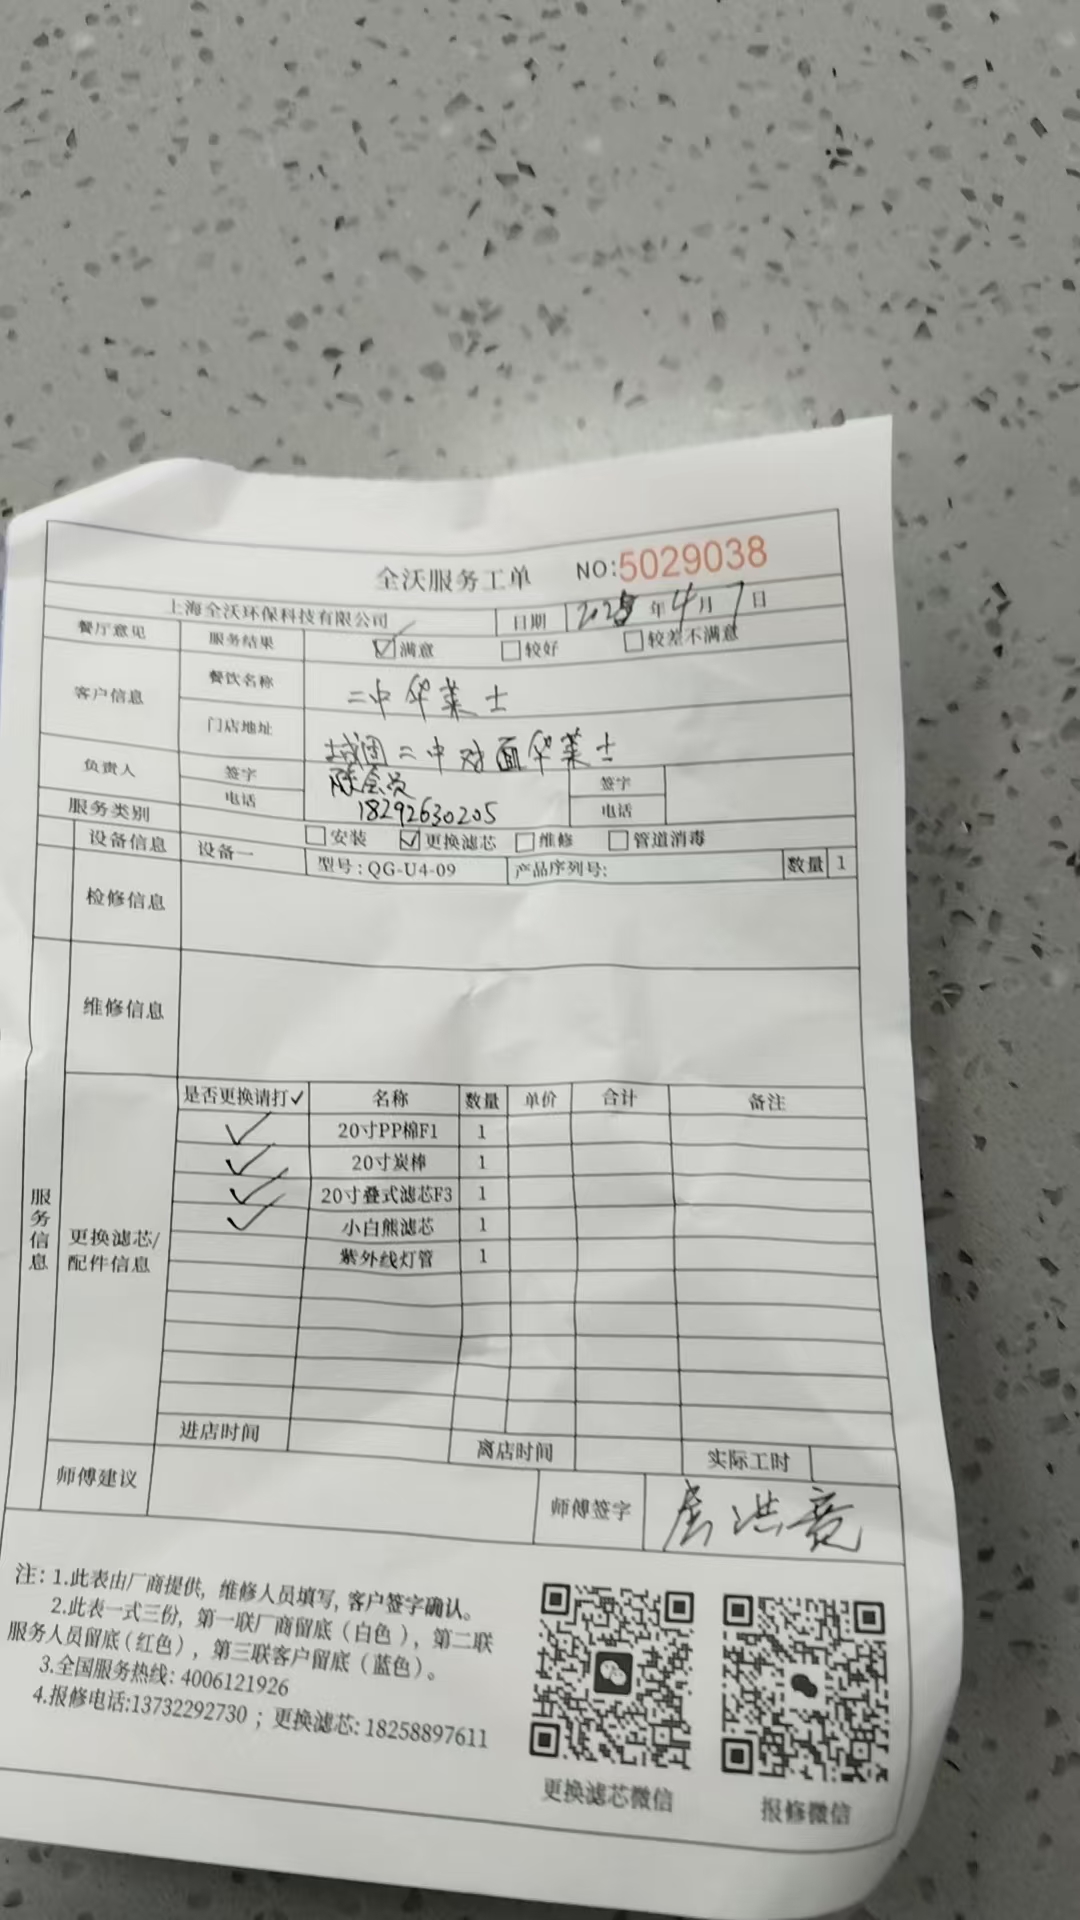 全沃服务工单 NO:5029038
上海全沃环保科技有限公司 日期 2025年4月7日
餐厅意见 服务结果 ☑满意 □较好 □较差不满意
客户信息 餐饮名称 二中华莱士
门店地址 城固二中对面华莱士
负责人 签字 签字
电话 18292630205 电话
服务类别 □安装 ☑更换滤芯 □维修 □管道消毒
服务信息
设备信息 设备一 型号:QG-U4-09 产品序列号: 数量 1
检修信息
维修信息
更换滤芯/配件信息
是否更换请打✓ 名称 数量 单价 合计 备注
✓ 20寸PP棉F1 1
✓ 20寸炭棒 1
✓ 20寸叠式滤芯F3 1
✓ 小白熊滤芯 1
紫外线灯管 1
进店时间 离店时间 实际工时
师傅建议 师傅签字
注:1.此表由厂商提供,维修人员填写,客户签字确认。
2.此表一式三份,第一联厂商留底(白色),第二联
服务人员留底(红色),第三联客户留底(蓝色)。
3.全国服务热线:4006121926
4.报修电话:13732292730;更换滤芯:18258897611
更换滤芯微信 报修微信